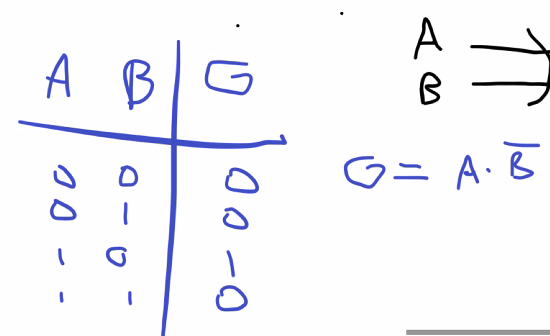 A B G
0 0 0
0 1 0
1 0 1
1 1 0
A
B
G = A · B̅